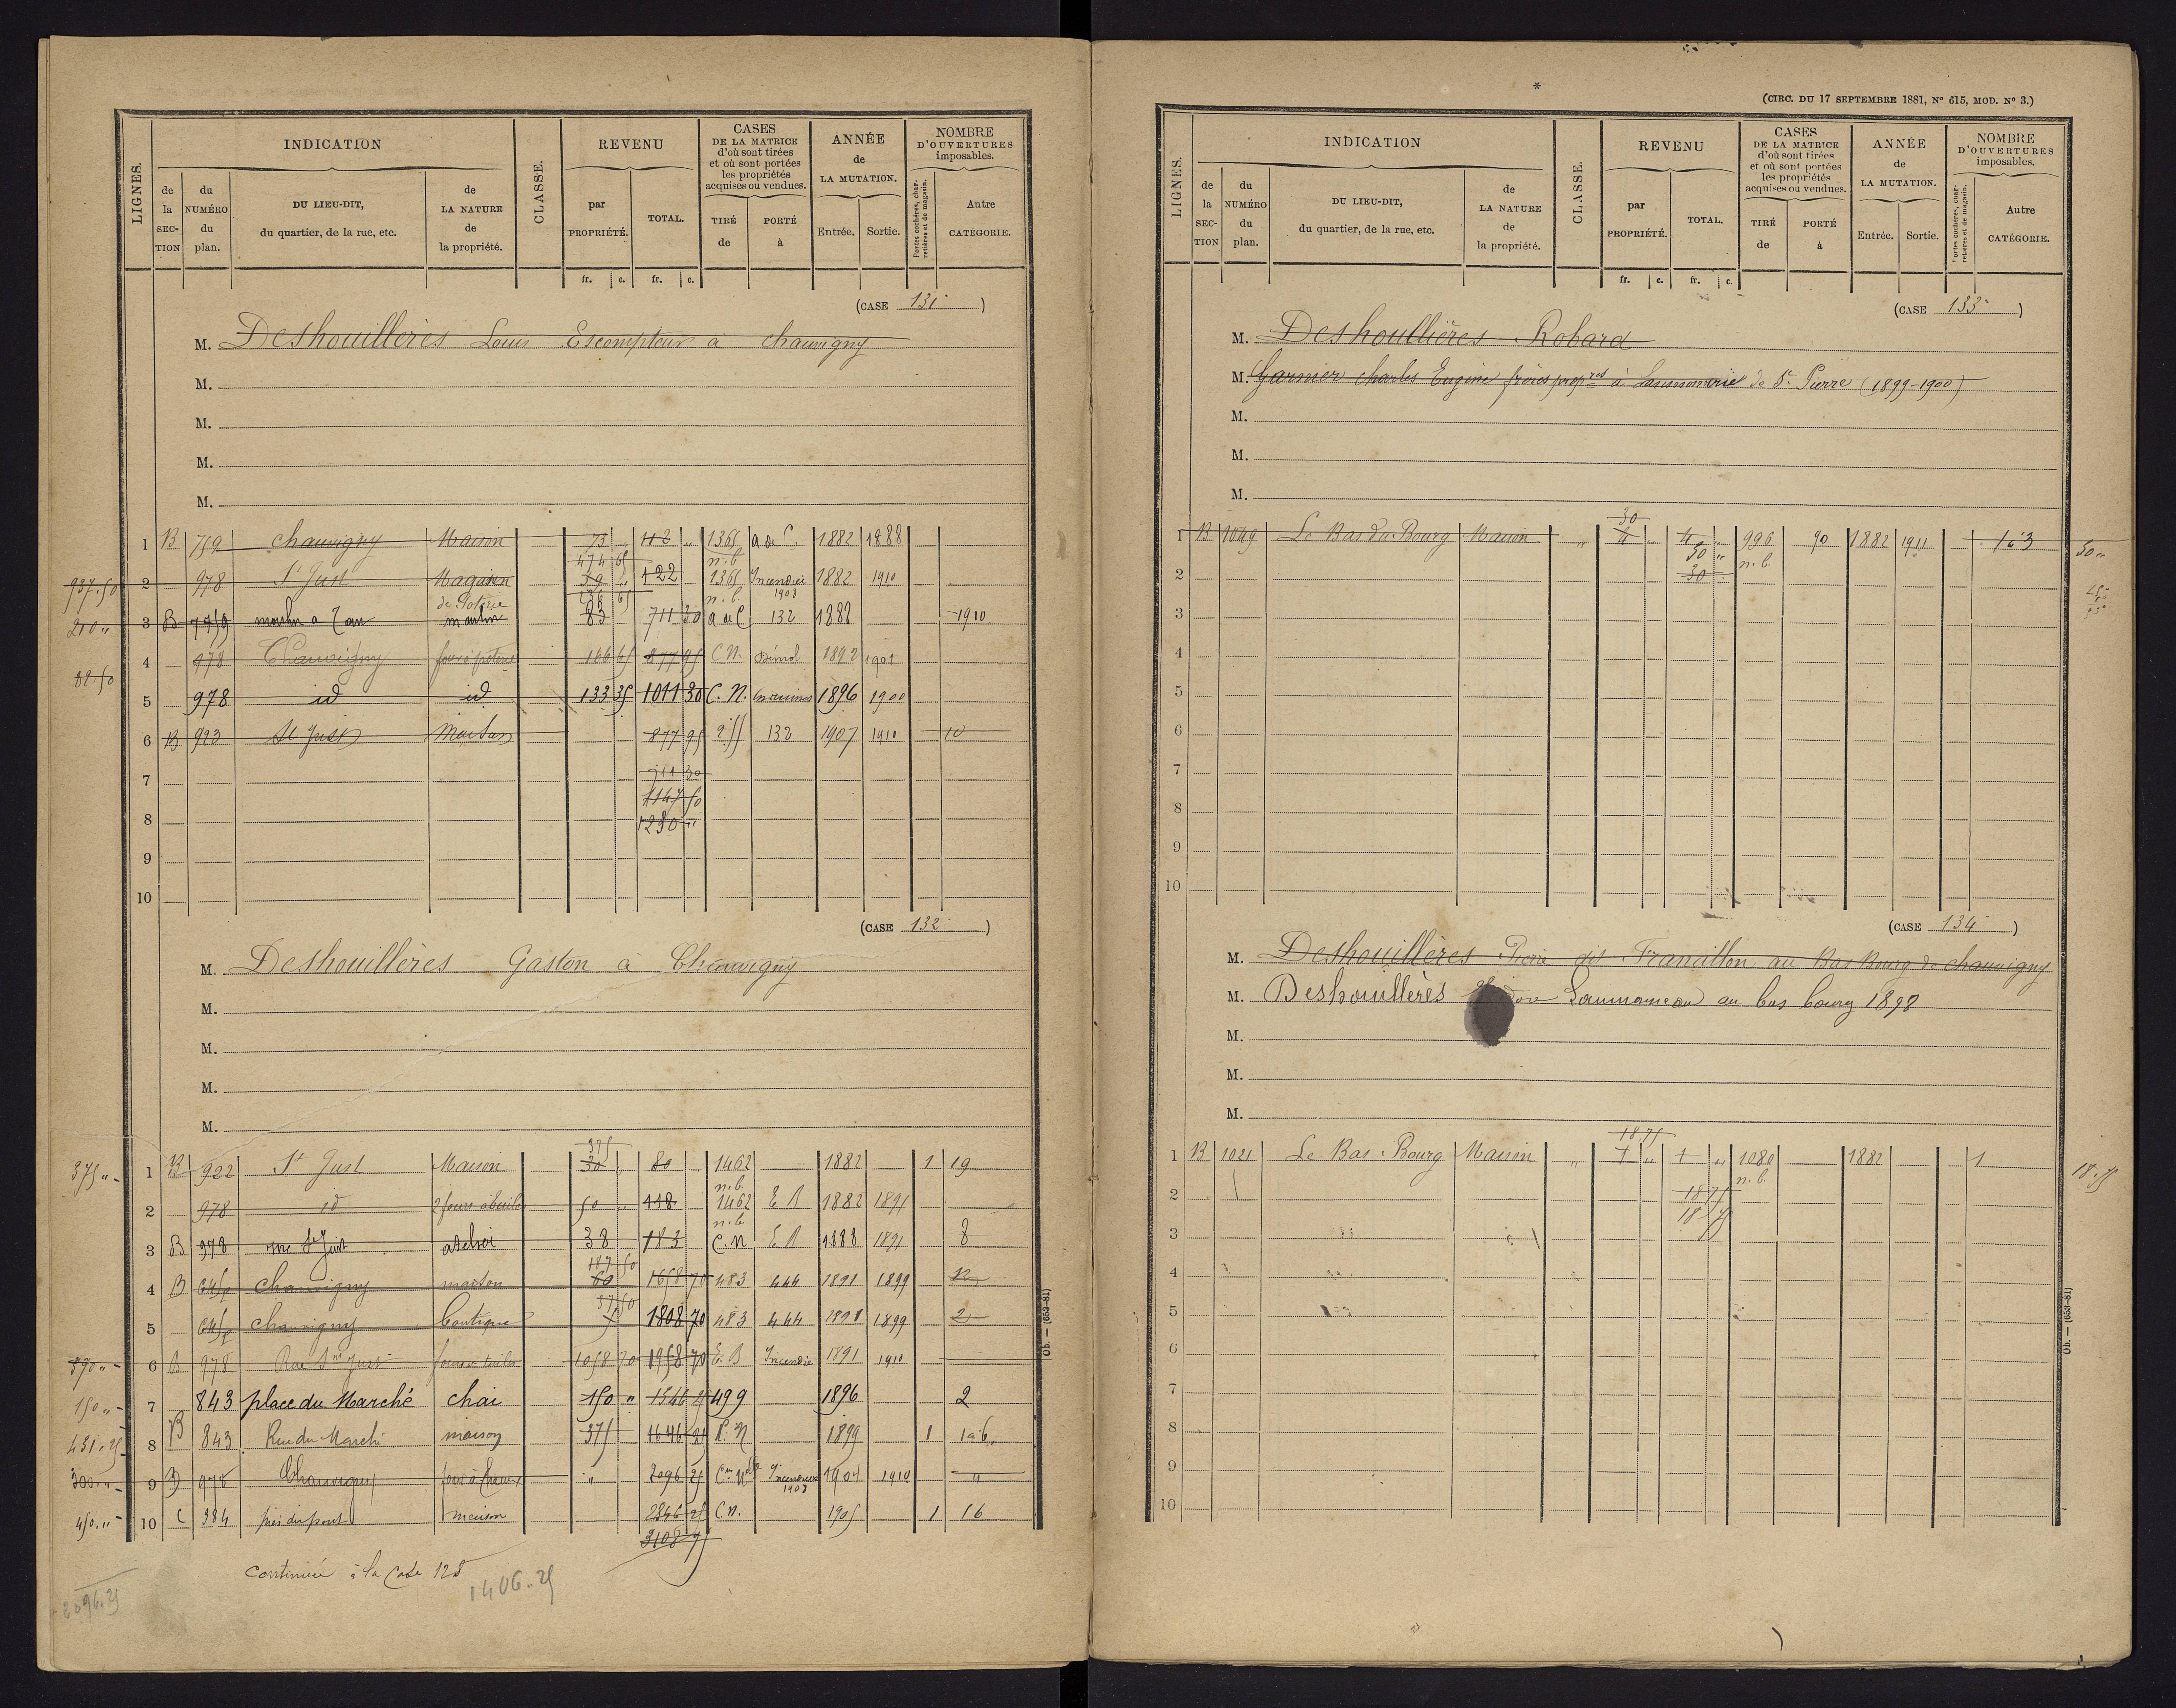 LIGNES.
INDICATION
de la SECTION
du NUMÉRO du plan.
DU LIEU-DIT, du quartier, de la rue, etc.
de LA NATURE de la propriété.
CLASSE.
REVENU
par PROPRIÉTÉ.
TOTAL.
CASES DE LA MATRICE d'où sont tirées et où sont portées les propriétés acquises ou vendues.
TIRÉ de
PORTÉ à
ANNÉE de LA MUTATION.
Entrée. Sortie.
NOMBRE D'OUVERTURES imposables.
Portes cochères, charretières et de magasin.
Autre CATÉGORIE.
fr. c. fr. c.
(CASE 131)
M. Deshouillères Louis Escompteur à chauvigny
M.
M.
M.
M.
1 B 759 chauvigny Maison 73 " 112 " 1365 a de C. 1882 1888
474 65 n. b.
937.50 2 978 St Just Magasin de Poterie 39 " 122 1365 n. b. Incendié 1908 1882 1910
236 65
210 " 3 B 759 moulin a Tan moulin 83 711 30 a de C 132 1888 1910
4 978 Chauvigny four à poterie 166 65 877 95 C.N. Démol 1892 1901
82.50
5 978 id id 133 35 1011 30 C. N. en ruines 1896 1900
6 B 923 St Just Maison 877 95 255 132 1907 1910 10
7 711 30
1147 50
8 1230 "
9
10
(CASE 132)
M. Deshouillères Gaston à Chauvigny
M.
M.
M.
M.
375
375 " 1 B 922 St Just Maison 30 " 80 1462 n. b. 1882 1 19
2 978 id 2 fours à tuiles 50 " 118 1462 n. b. E B 1882 1891
3 B 978 rue St Just atelier 38 183 C. N E B 1888 1891 8
187 50
4 B chauvigny maison 60 1658 70 483 444 1891 1899
37 50
5 chauvigny boutique 5 1808 70 483 444 1891 1899 2
6 B 978 Rue St Just four a tuiles 1058 70 1958 70 E. B Incendié 1891 1910
150 " 7 843 place du Marché chai 150 " 1546 25 499 1896 2
431.25 8 B 843 Rue du Marché maison 375 1646 25 C. N 1899 1 1a6
300 " 9 B 978 Chauvigny four à chaux " 2096 25 Con Nlle Incendié 1908 1904 1910 "
450 " 10 C 384 près du pont maison 2846 25 C N. 1905 1 16
3108 75
continuée à la Case 128
1406.25
2096.25
Ob. — (653-81)
*
(CIRC. DU 17 SEPTEMBRE 1881, N° 615, MOD. N° 3.)
LIGNES.
INDICATION
de la SECTION
du NUMÉRO du plan.
DU LIEU-DIT, du quartier, de la rue, etc.
de LA NATURE de la propriété.
CLASSE.
REVENU
par PROPRIÉTÉ.
TOTAL.
CASES DE LA MATRICE d'où sont tirées et où sont portées les propriétés acquises ou vendues.
TIRÉ de
PORTÉ à
ANNÉE de LA MUTATION.
Entrée. Sortie.
NOMBRE D'OUVERTURES imposables.
Portes cochères, charretières et de magasin.
Autre CATÉGORIE.
fr. c. fr. c.
(CASE 133)
M. Deshoullières Robard
M. Garnier Charles Eugène frères propres à Laumonerie de St Pierre (1899-1900)
M.
M.
M.
30
1 B 1049 Le Bas du Bourg Maison " 4 " 4 " 996 n. b. 90 1882 1911 163 30 "
30 "
2 30
3
4
5
6
7
8
9
10
(CASE 134)
M. Deshouillères Pierre dit Francillon au Bas Bourg de chauvigny
M. Deshouillères Laumoneau au bas bourg 1898
M.
M.
M.
18.75
1 B 1021 Le Bas Bourg Maison " 1 " 1 " 1080 n. b. 1882 1 18.75
2 18 75
18 75
3
4
5
6
7
8
9
10
Ob. — (653-81)